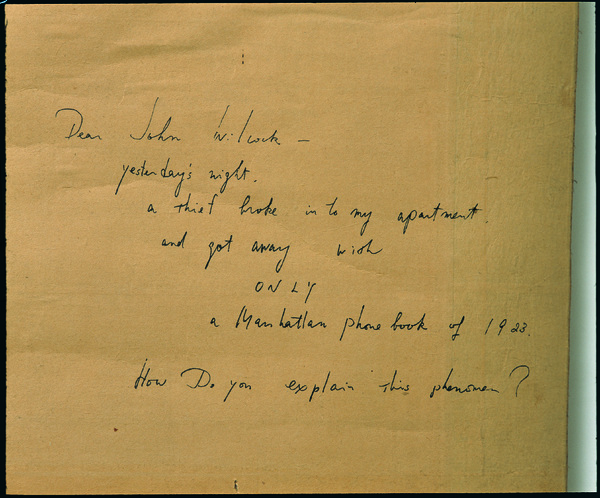 Dear John Wilcock –
yesterday's night.
a thief broke in to my apartment.
and got away wish
ONLY
a Manhattan phone book of 1923.
How Do you explain this phenomen?